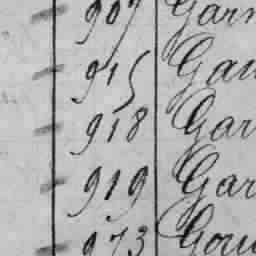 907 Gar
915 Gar
918 Gar
919 Gar
973 Gou